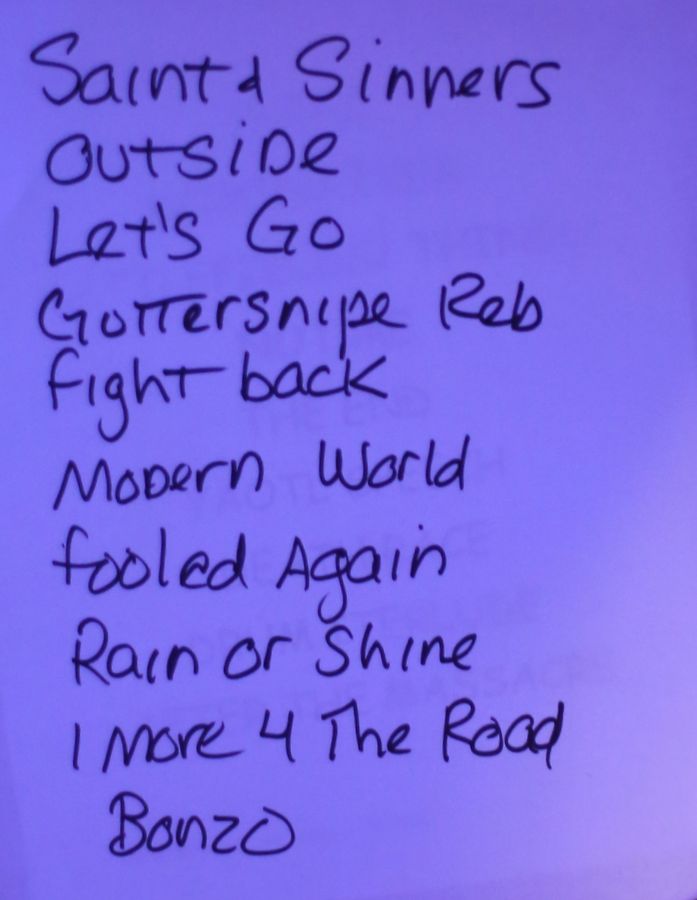 Saint & Sinners
OUTSiDe
Let's Go
GuTTersnipe Reb
fight back
Modern World
fooled Again
Rain or Shine
1 More 4 The Road
Bonzo
THE END